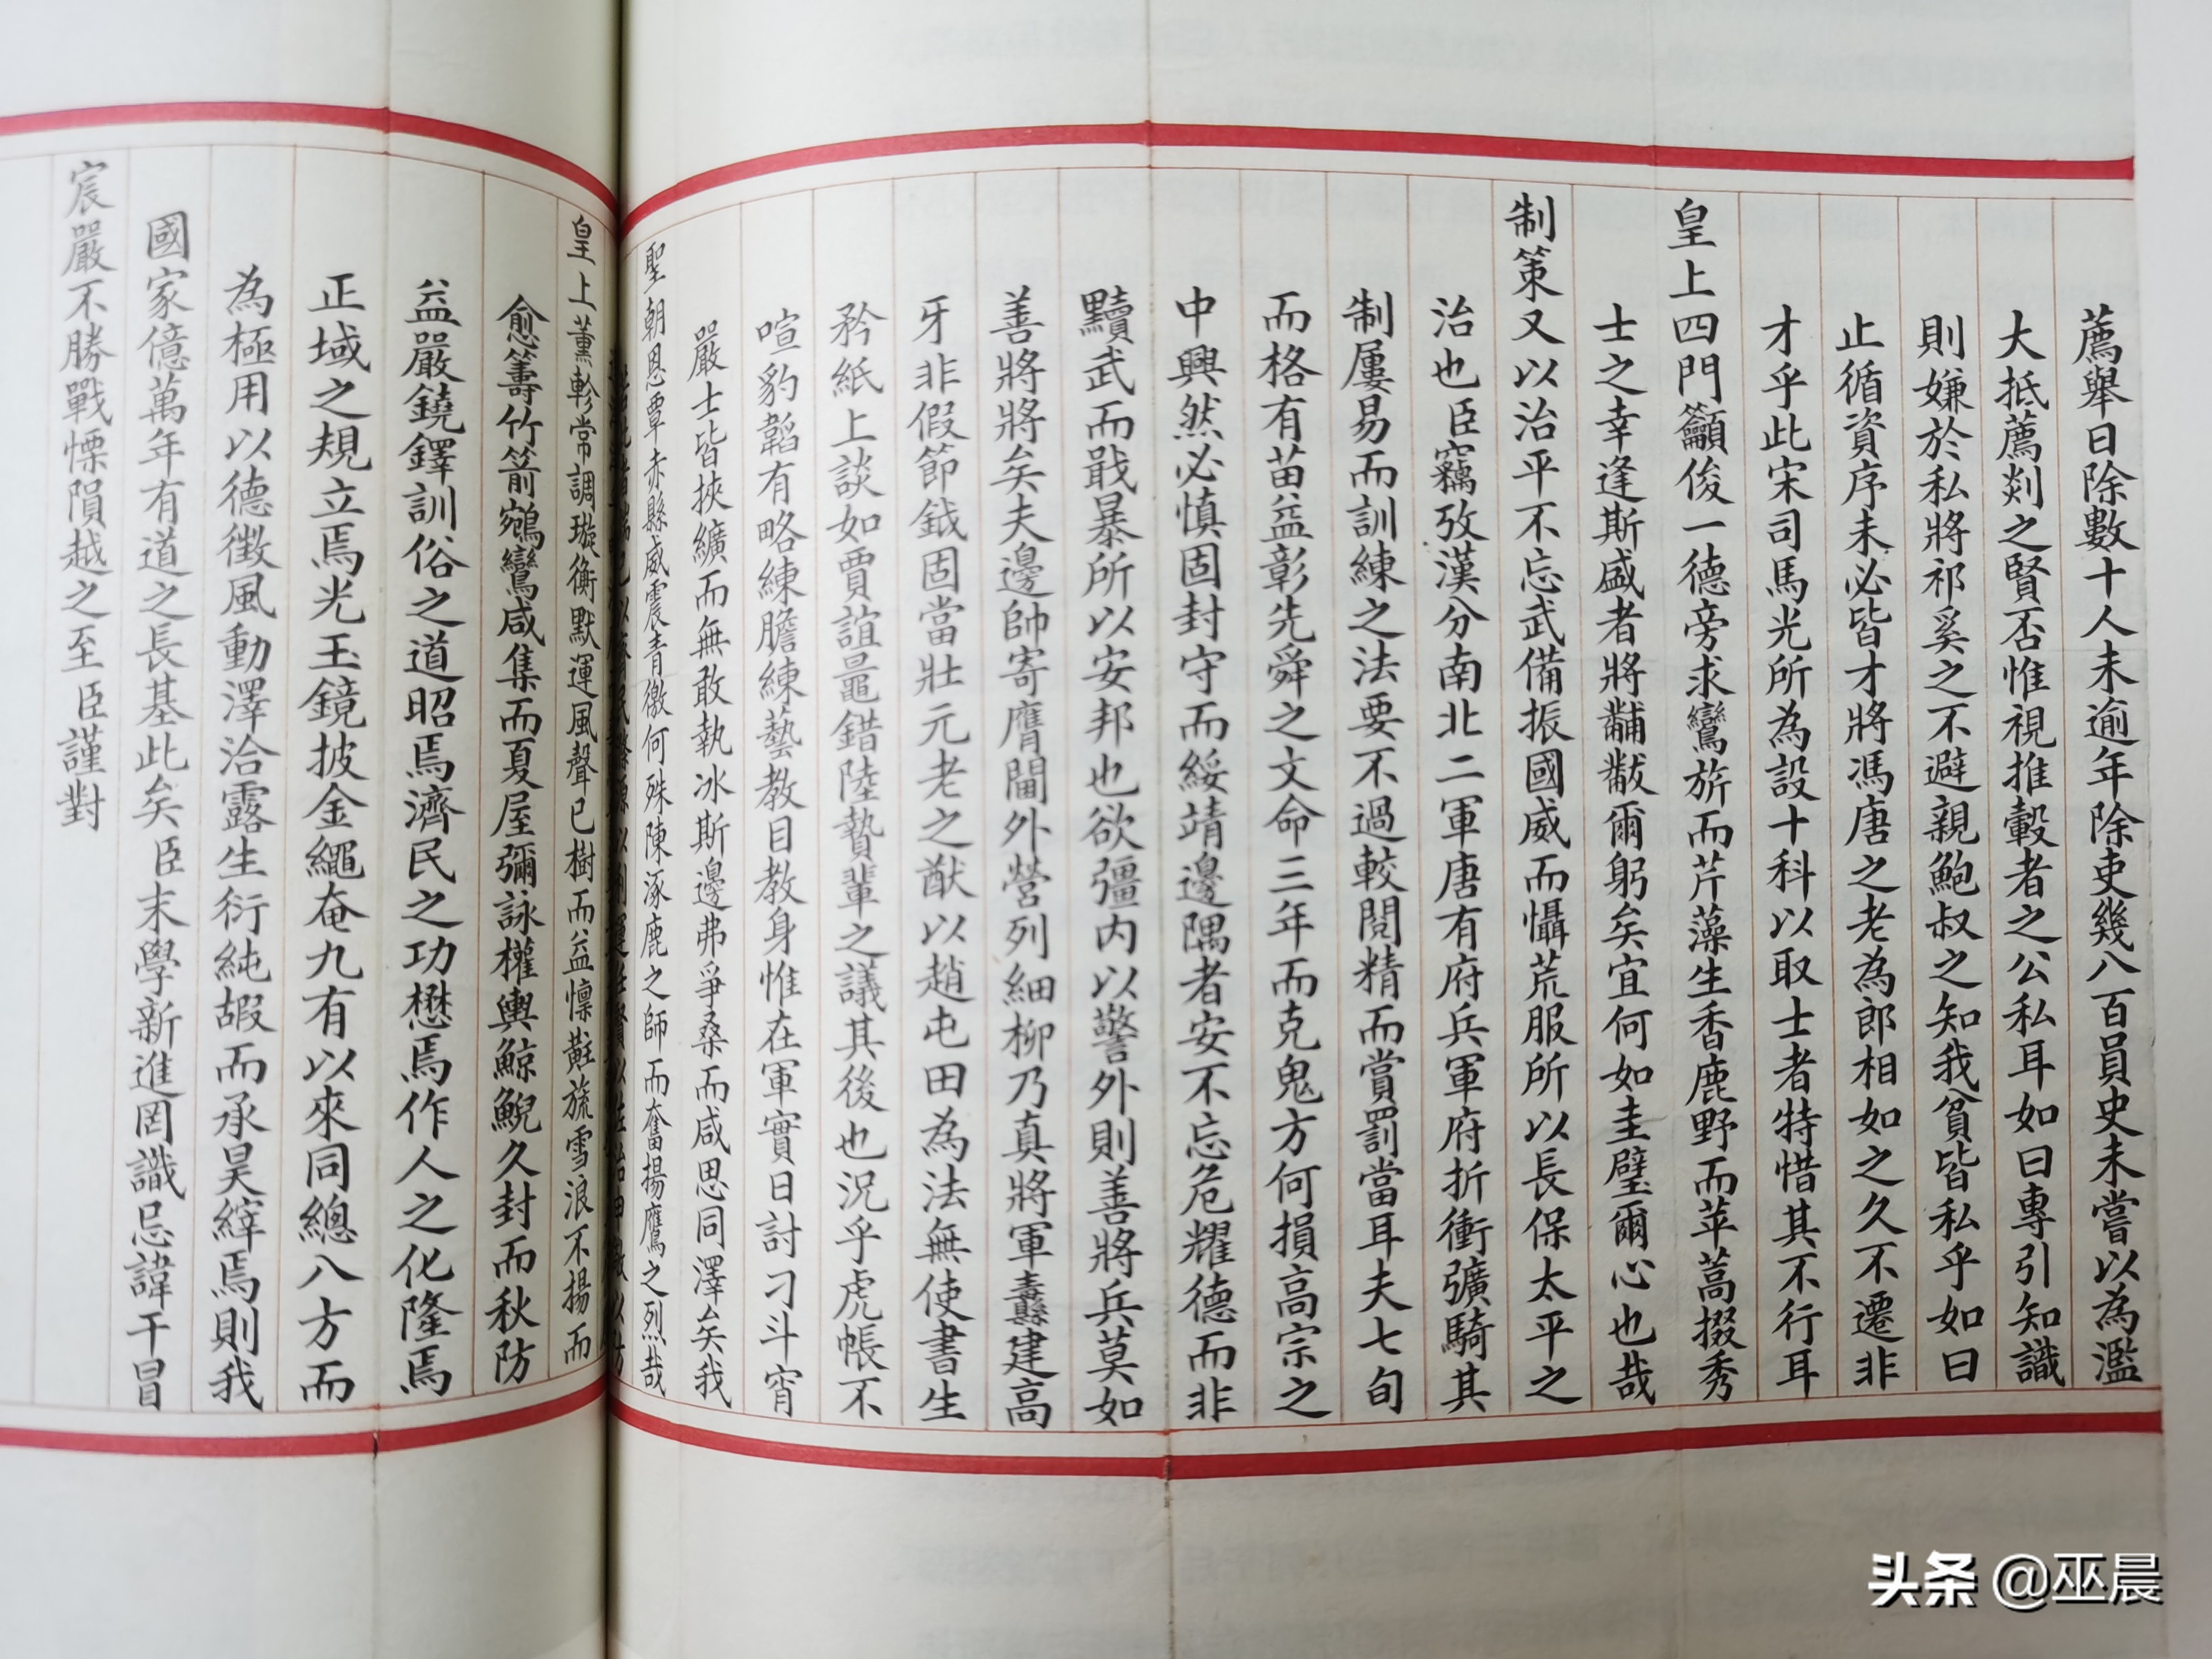 薦舉日除數十人未逾年除吏幾八百員史未嘗以為濫
大抵薦剡之賢否惟視推轂者之公私耳如曰專引知識
則嫌於私將祁奚之不避親鮑叔之知我貧皆私乎如曰
止循資序未必皆才將馮唐之老為郎相如之久不遷非
才乎此宋司馬光所為設十科以取士者特惜其不行耳
皇上四門籲俊一德旁求鸞旂而芹藻生香鹿野而苹蒿掇秀
士之幸逢斯盛者將黼黻爾躬矣宜何如圭璧爾心也哉
制策又以治平不忘武備振國威而懾荒服所以長保太平之
治也臣竊攷漢分南北二軍唐有府兵軍府折衝彍騎其
制屢易而訓練之法要不過較閱精而賞罰當耳夫七旬
而格有苗益彰先舜之文命三年而克鬼方何損高宗之
中興然必慎固封守而綏靖邊隅者安不忘危耀德而非
黷武而戢暴所以安邦也欲彊内以警外則善將兵莫如
善將將矣夫邊帥寄膺閫外營列細柳乃真將軍纛建高
牙非假節鉞固當壯元老之猷以趙屯田為法無使書生
矜紙上談如賈誼鼂錯陸贄輩之議其後也況乎虎帳不
喧豹韜有略練膽練藝教目教身惟在軍實日討刁斗宵
嚴士皆挾纊而無敢執冰斯邊弗爭桑而咸思同澤矣我
聖朝恩覃赤縣威震青徼何殊陳涿鹿之師而奮揚鷹之烈哉
皇上薰軫常調璇衡默運風聲已樹而益懍黈旒雪浪不揚而
愈籌竹箭鵷鸞咸集而夏屋彌詠權輿鯨鯢久封而秋防
益嚴鐃鐸訓俗之道昭焉濟民之功懋焉作人之化隆焉
正域之規立焉光玉鏡披金繩奄九有以來同總八方而
為極用以德徵風動澤洽露生衍純嘏而承昊縡焉則我
國家億萬年有道之長基此矣臣末學新進罔識忌諱干冒
宸嚴不勝戰慄隕越之至臣謹對
头条 @巫晨